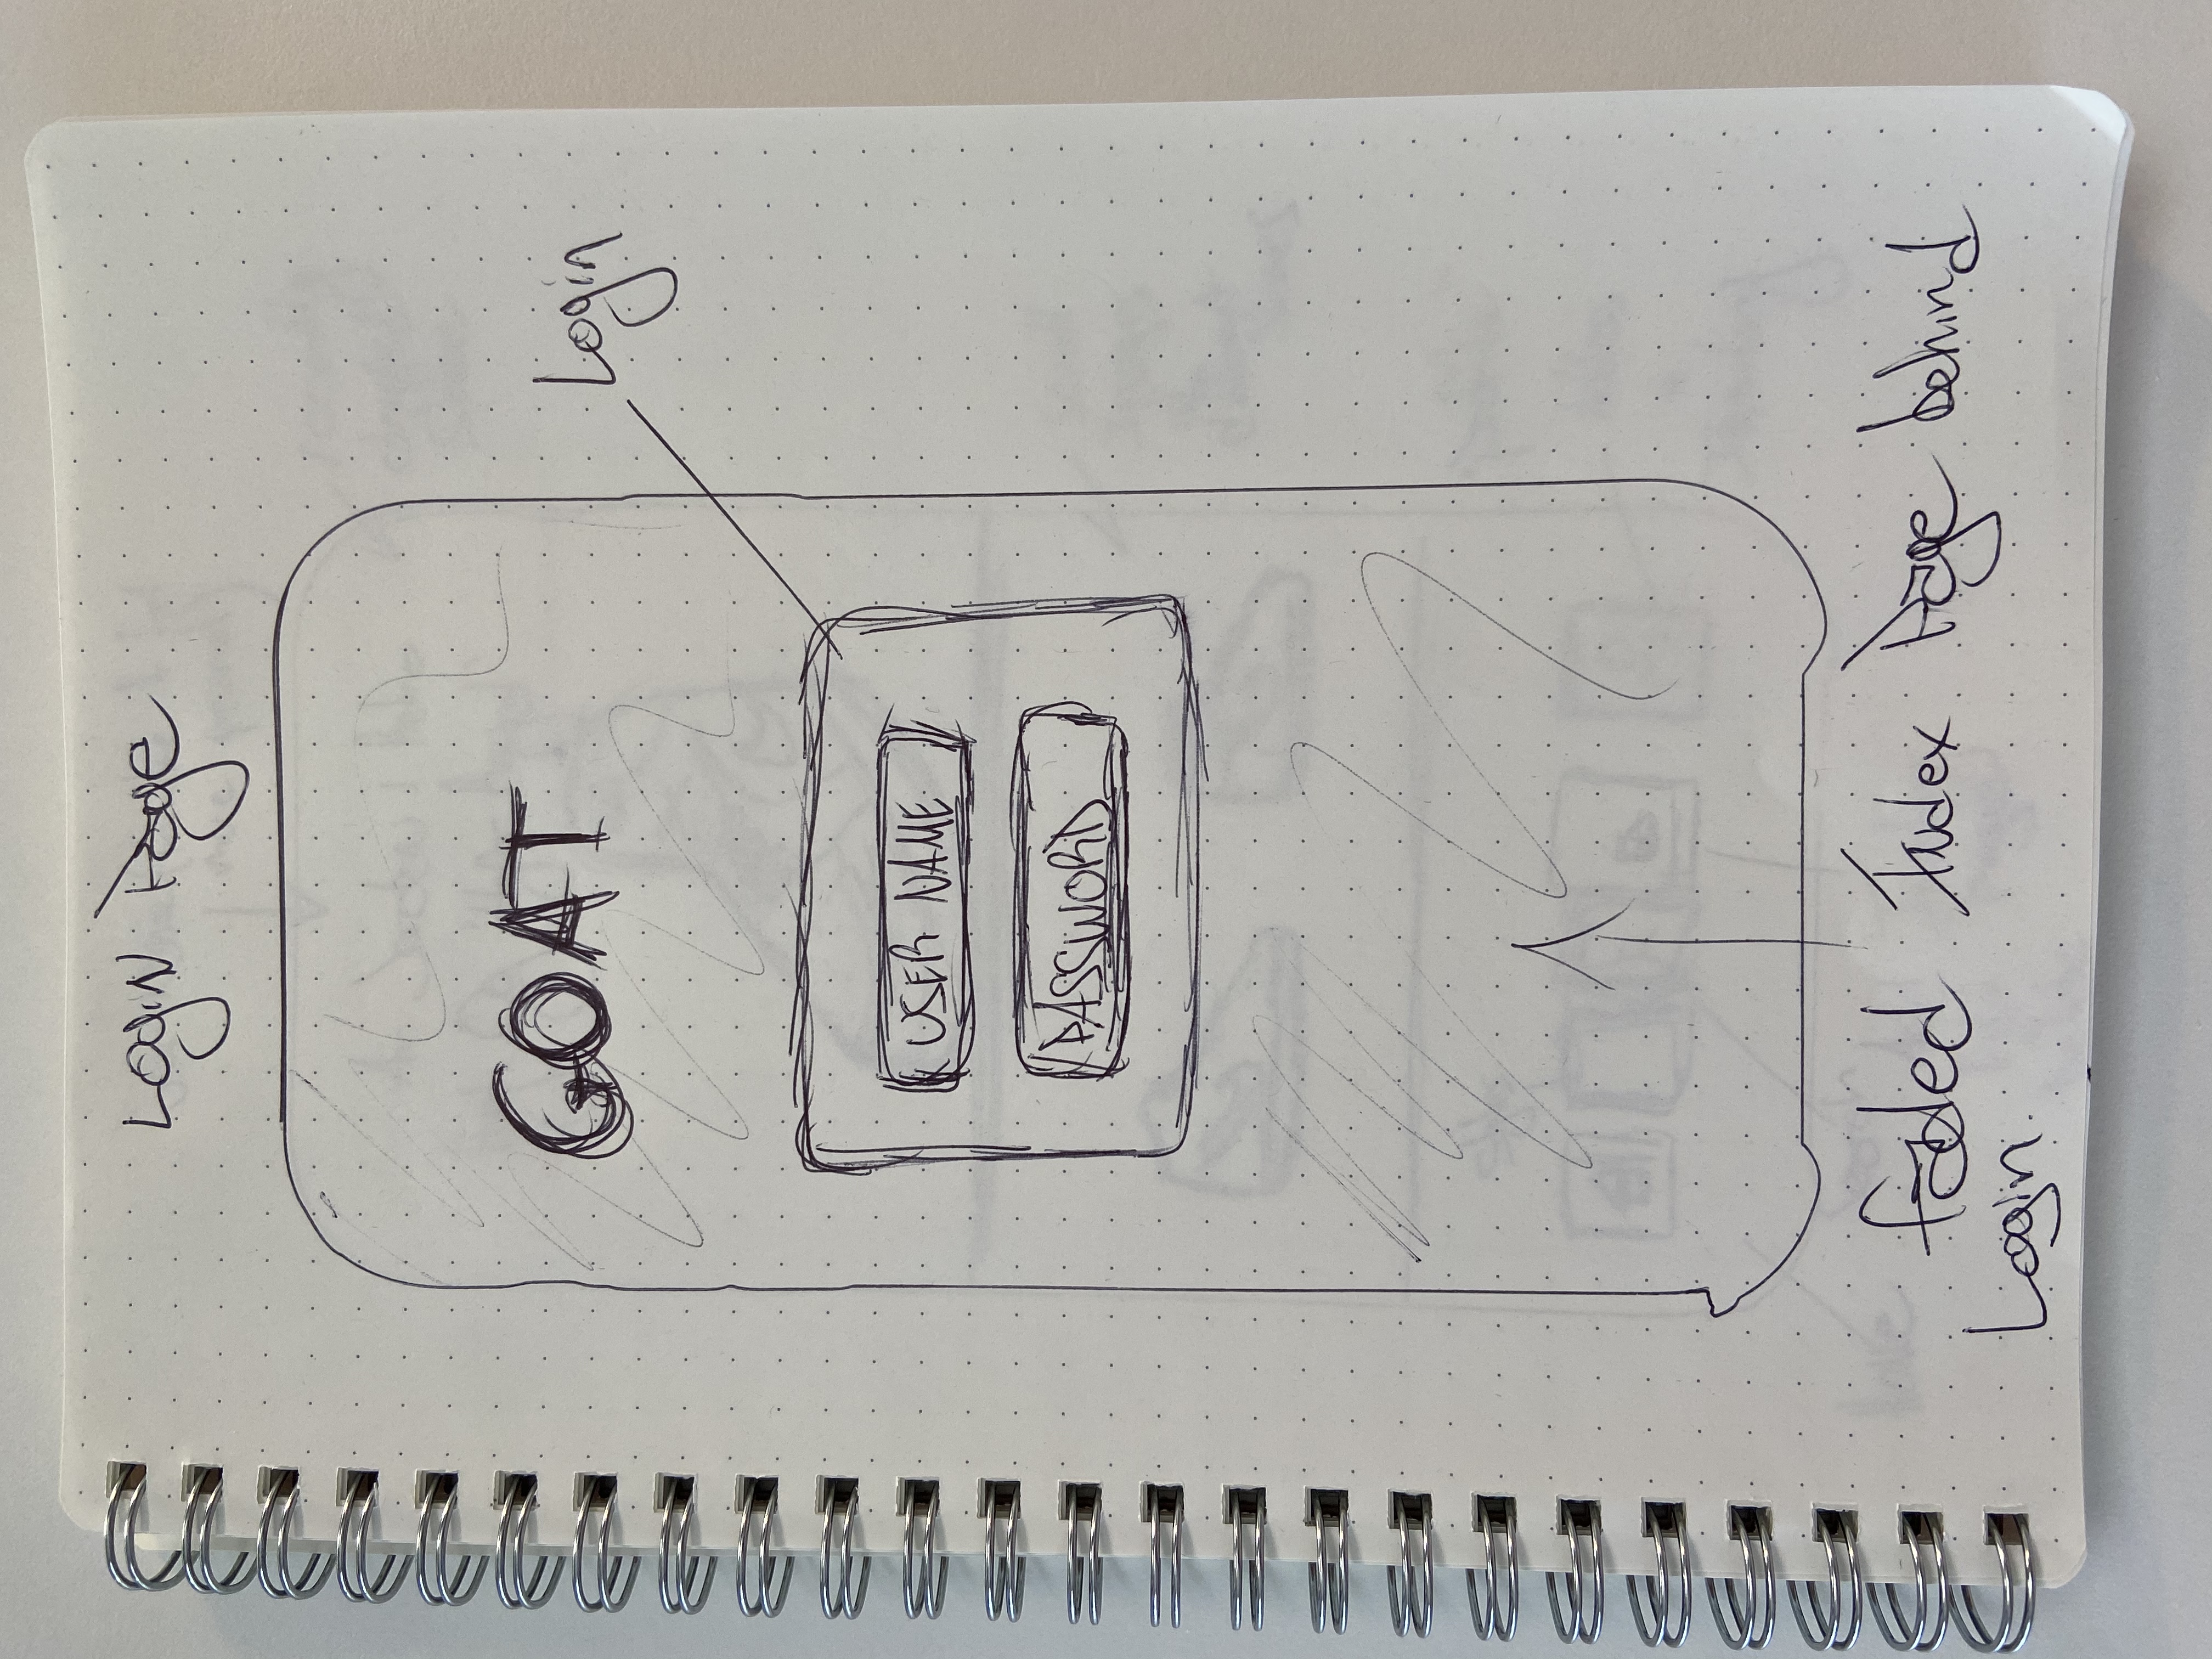 Login Page
GOAT
Login
USER NAME
PASSWORD
faded Index Page behind
Login.